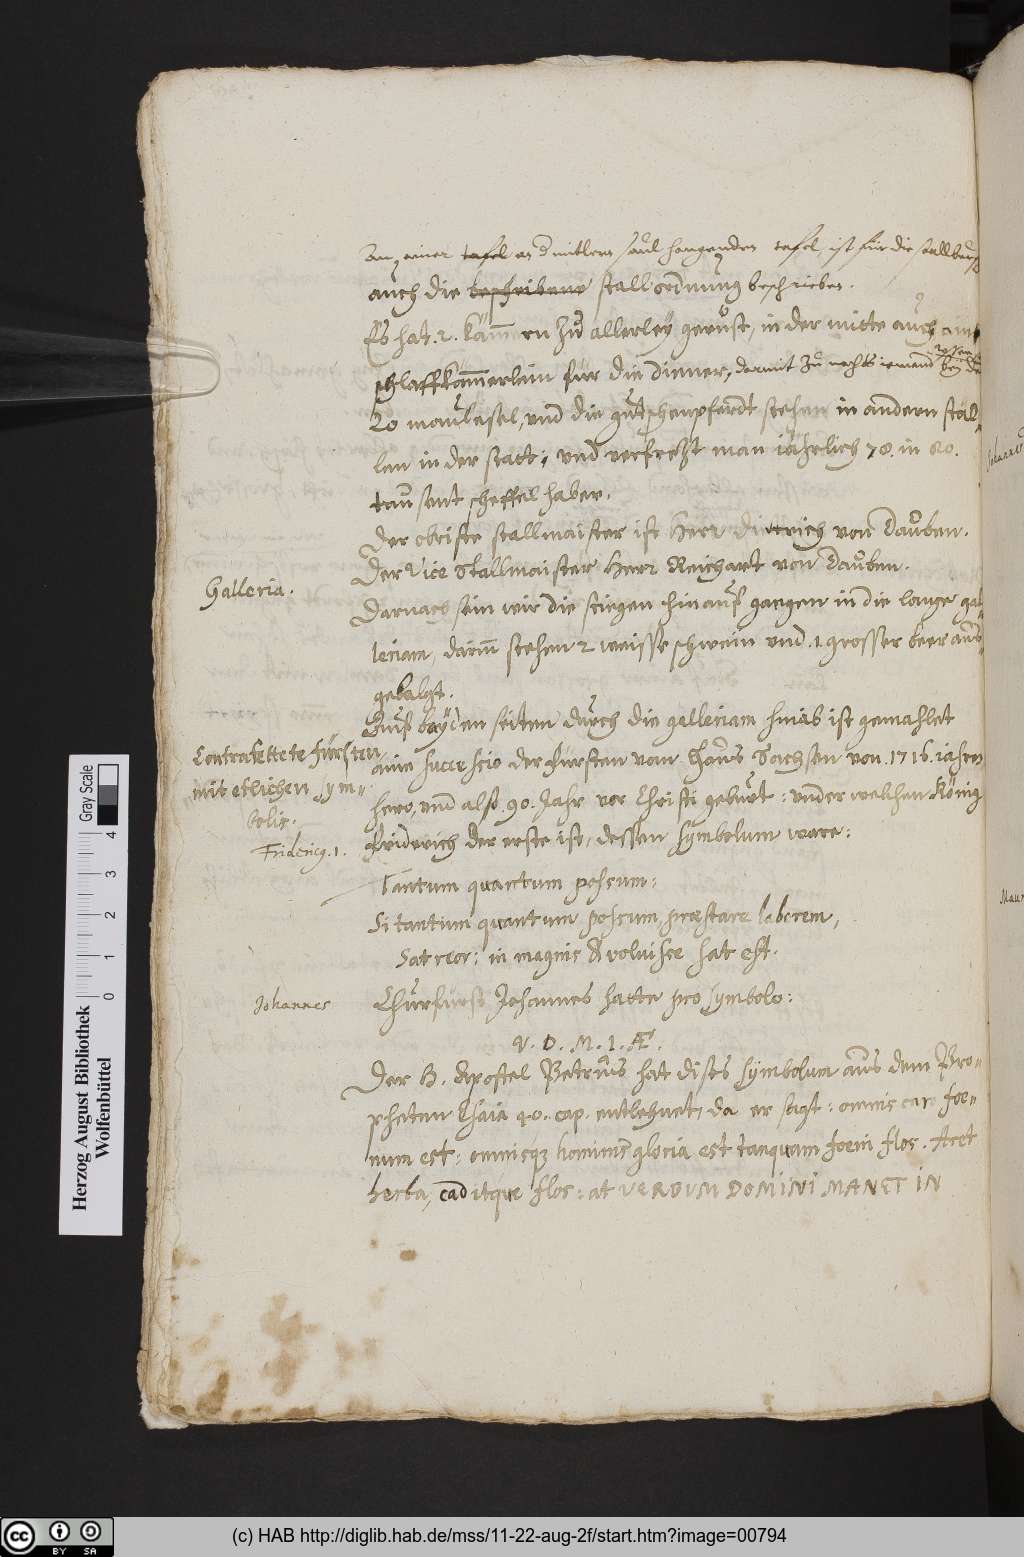 An einer tafel an d mitlern saul hangenden tafel, ist für die stallbursch
auch die beschribene stallordnung beschrieben.
Es hat .2. kam̄ern zu allerley gerüst, in der mitte auch ein
schlaffkam̄erlein für die diener, darmit zu nachts iemand bey den
rossen
20 maulesel, und die gutschenpferdt stehen in andern stäl-
len in der statt, und verfrezt man iährlich 70. in 80.
tausent scheffel haber.
Der obriste stallmaister ist Herr Dietrich von Dauben.
Der Vice Stallmaister Herr Reichart von Dauben.
Galleria.
Darnach sein wir die stiegen hinauf gangen in die lange gal-
leriam, darin̄ stehen 2 weisse schwein und .1. grosser beer auß-
gebalgt.
Auf bayden seiten durch die galleriam hinab ist gemahlet
Contrafettete fürsten
mit etlichen sym-
bolis.
aine successio der fürsten vom Haus Sachsen von 1716. iahren
hero, und also 90. Jahr vor Christi geburt: under welchen König
Friderich der erste ist, dessen symbolum ware:
Frideric9. 1.
Tantum quantum possum:
Si tantum quantum possum, præstare laborem,
Sat reor: in magnis & voluisse sat est.
Johannes
Churfürst Johannes hatte pro symbolo:
V. D. M. I. Æ.
Der H. Apostel Petrus hat dises symbolum aus dem Pro-
pheten Esaia 40. cap. entlehnet, da er sagt: omnis caro foe-
num est: omnisq3 hominis gloria est tanquam foeni flos. Aret
herba, caditque flos: at VERBUM DOMINI MANET IN
Johannes
Maur
Herzog August Bibliothek
Wolfenbüttel
Gray Scale
0 1 2 3 4
cc BY SA
(c) HAB http://diglib.hab.de/mss/11-22-aug-2f/start.htm?image=00794